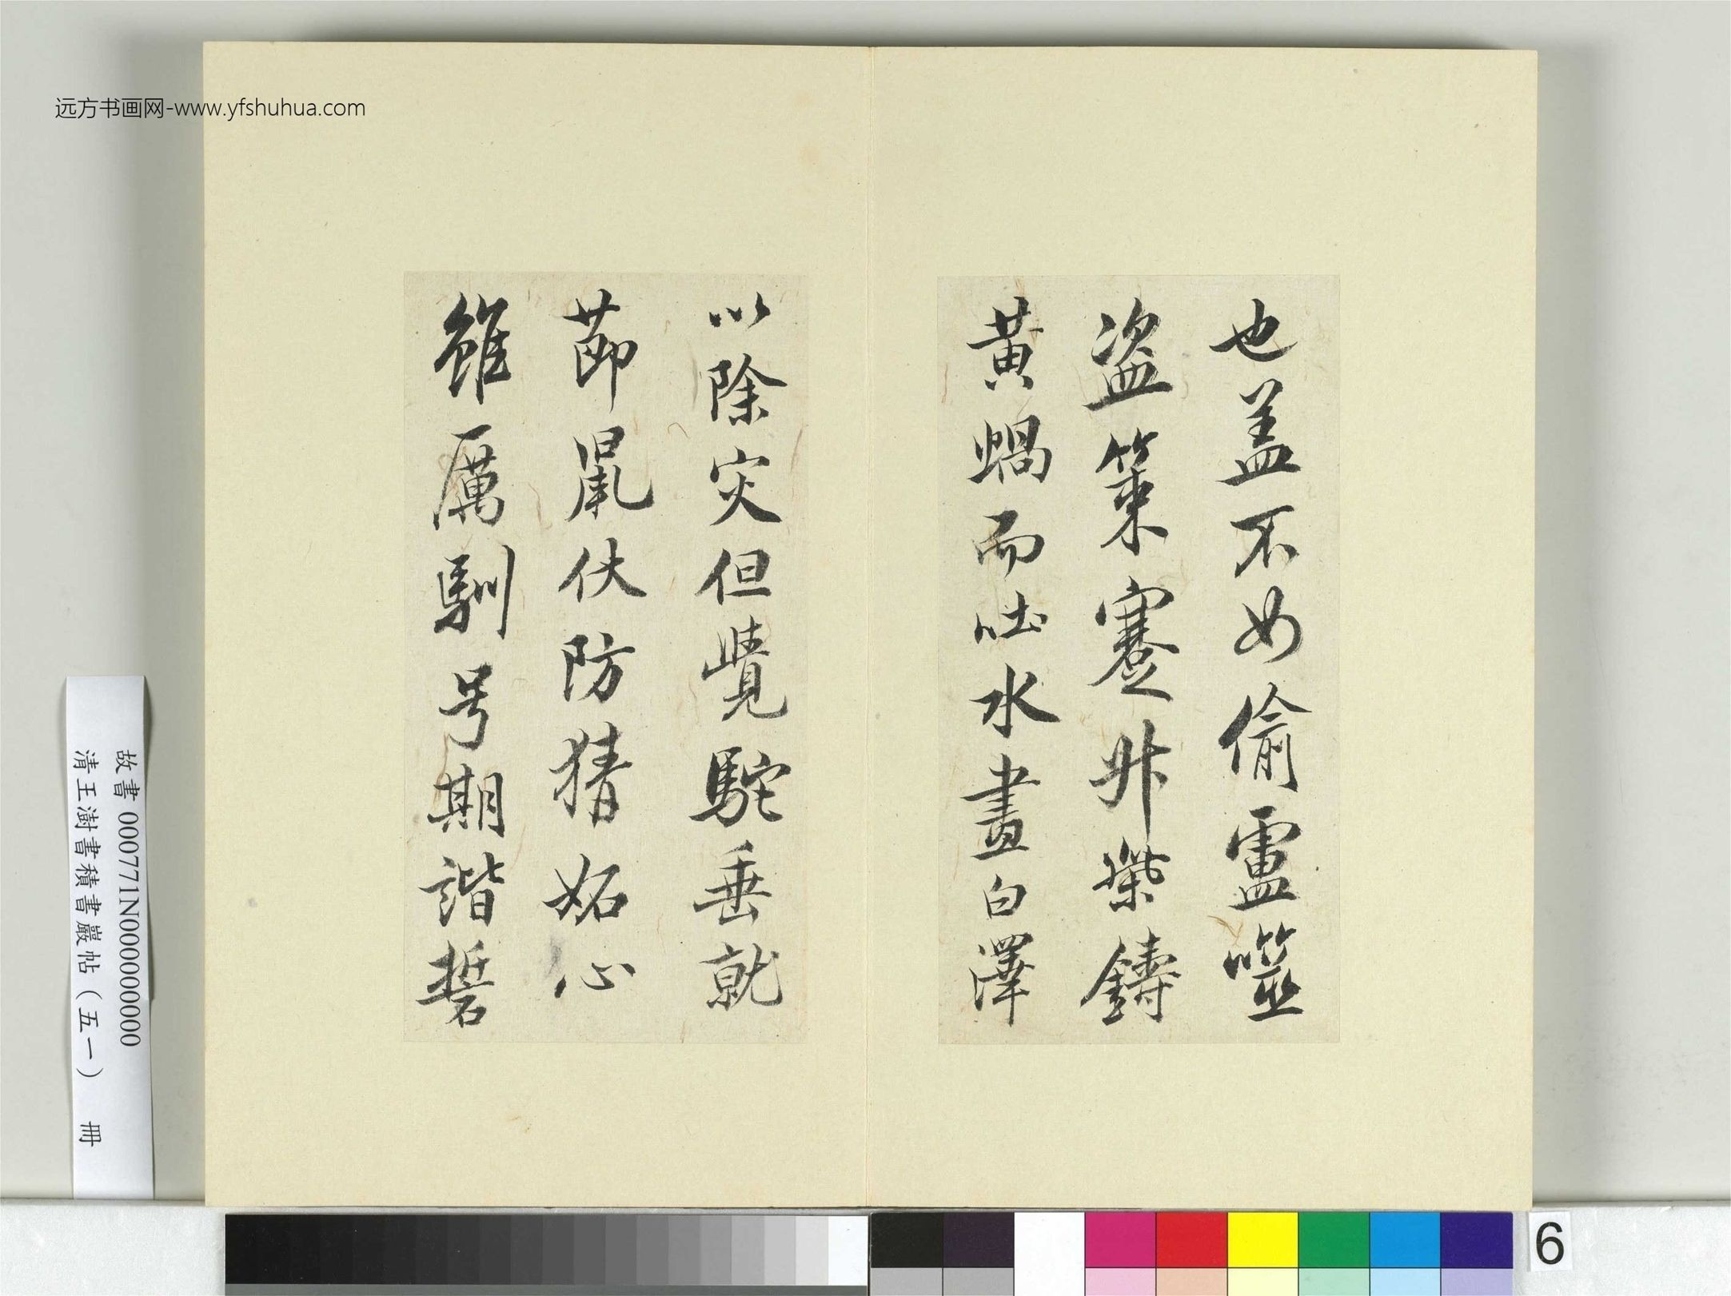 远方书画网-www.yfshuhua.com
也盖不如偷盧噬
盗策蹇升鑄
黄蝸而吐水畫白澤
以除灾但覺駝垂就
莭鼠伏防猜妬心
雖厲馴号期諧硩
故書 000771N000000000
清王澍書積書巖帖（五一） 冊
6